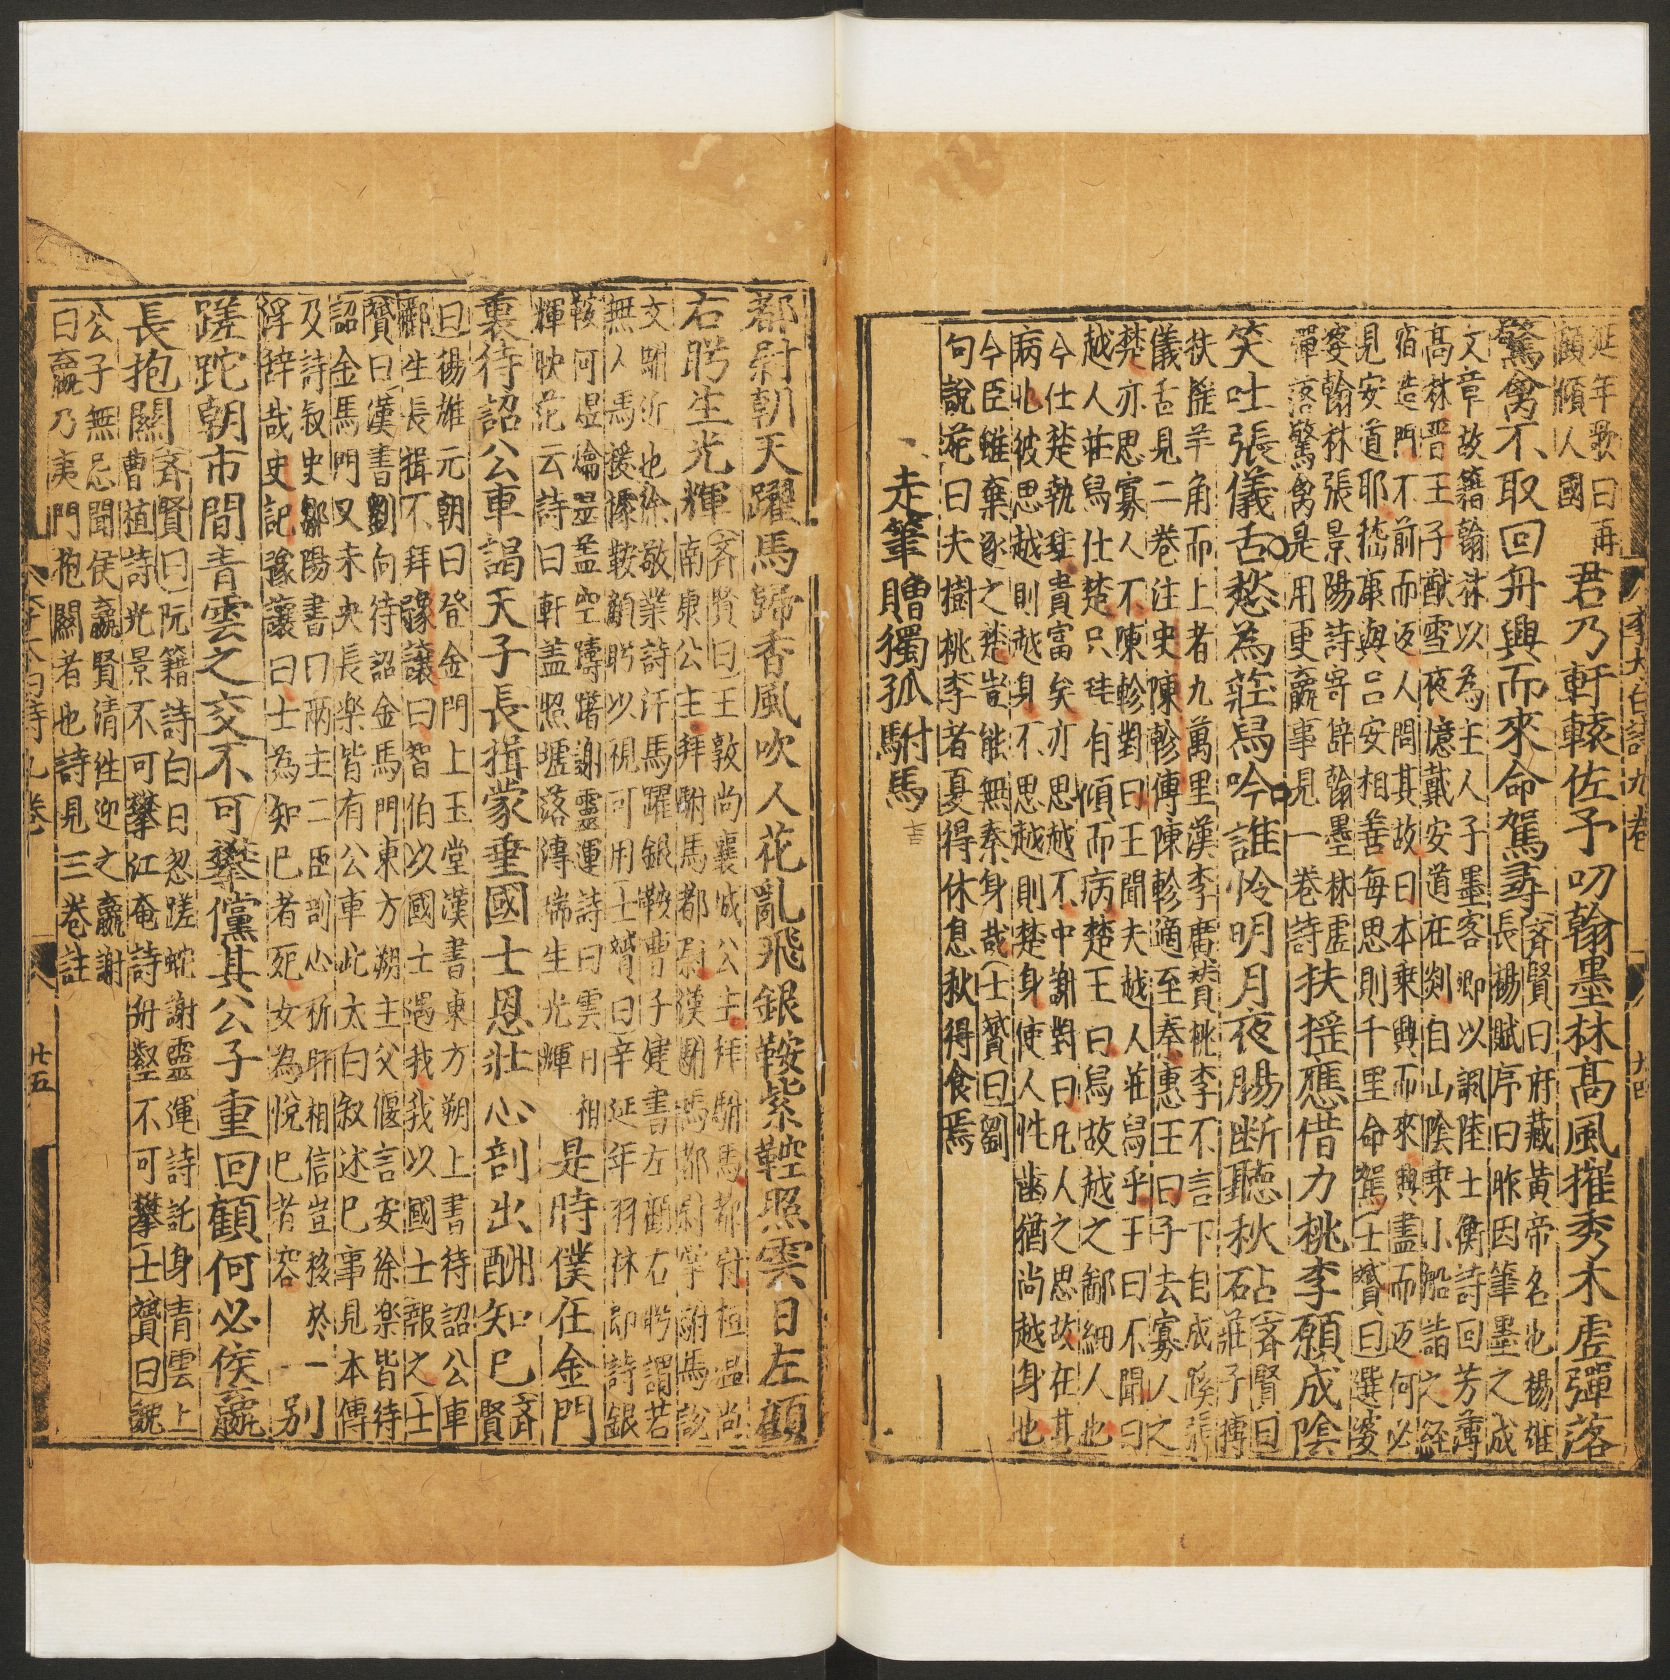 延年歌曰再
顧傾人國
君乃軒轅佐予叨翰墨林高風摧秀木虚彈落
驚禽不取回舟興而來命駕尋
齊賢曰府藏黄帝名也楊雄
長楊賦序曰昨因筆墨之成
文章故籍翰林以為主人子墨客卿以諷陸士衡詩回芳薄
高林晋王子猷雪夜憶戴安道在剡自山陰乗小船詣之経
宿造門不前而返人問其故曰本乗興而來興盡而返何必
見安道耶嵇康與吕安相善毎思則千里命駕士贇曰選
翰林張景陽詩寄辭翰墨林虚
彈落驚禽是用更羸事見一巻詩
扶揺應借力桃李願成陰
笑吐張儀舌愁為莊舄吟誰怜明月夜腸断聽秋石
齊賢曰
莊子摶
扶揺羊角而上者九萬里漢李廣賛桃李不言下自成蹊張
儀舌見二巻注史陳軫傳陳軫適至秦惠王曰子去寡人之
楚亦思寡人不陳軫對曰王聞夫越人莊舄乎王曰不聞曰
越人莊舄仕楚只珪有傾而病楚王曰舄故越之鄙細人也
今仕楚執珪貴富矣亦思越不中謝對曰凡人之思故在其
病也彼思越則越身不思越則楚身使人性齒猶尚越身也
今臣雖棄逐之楚豈能無秦身哉士贇曰劉
句說苑曰夫樹桃李者夏得休息秋得食焉
走筆贈獨孤駙馬
李太白詩九巻
廾四
都尉朝天躍馬歸香風吹人花亂飛銀鞍紫鞚照雲日左顧
右盻生光輝
齊賢曰王敦尚襄城公主拜駙馬都尉桓温尚
南康公主拜駙馬都尉漢駙馬都尉掌駙馬說
文駙近也徐敬業詩汗馬躍銀鞍曹子建書左顧右盻謂若
無人馬援據鞍顧盻以視可用士贇曰辛延年羽林郎詩銀
鞍何煜爚翠盖空踟躇謝靈運詩曰雲日相
輝映范云詩曰軒盖照墟落傳瑞生光輝
是時僕在金門
裏待詔公車謁天子長揖蒙垂國士恩壮心剖出酬知己
齊
賢
曰楊雄元朝曰登金門上玉堂漢書東方朔上書待詔公車
酈生長揖不拜豫讓曰智伯以國士遇我我以國士報之士
贇曰漢書劉向待詔金馬門東方朔主父偃言安徐楽皆待
詔金馬門又未央長楽皆有公車此太白叙述己事見本傳
及詩叔史鄒陽書曰兩主二臣剖心析肝相信豈移於
浮辭哉史記豫讓曰士為知己者死女為恱己者容
一別
蹉跎朝市間青雲之交不可攀儻其公子重回顧何必侯嬴
長抱關
齊賢曰阮籍詩白日忽蹉跎謝靈運詩託身青雲上
曹植詩光景不可攀江奄詩舟壑不可攀士贇曰魏
公子無忌聞侯嬴賢清往迎之嬴謝
曰嬴乃夷門抱關者也詩見三巻註
李太白詩九巻
廾五